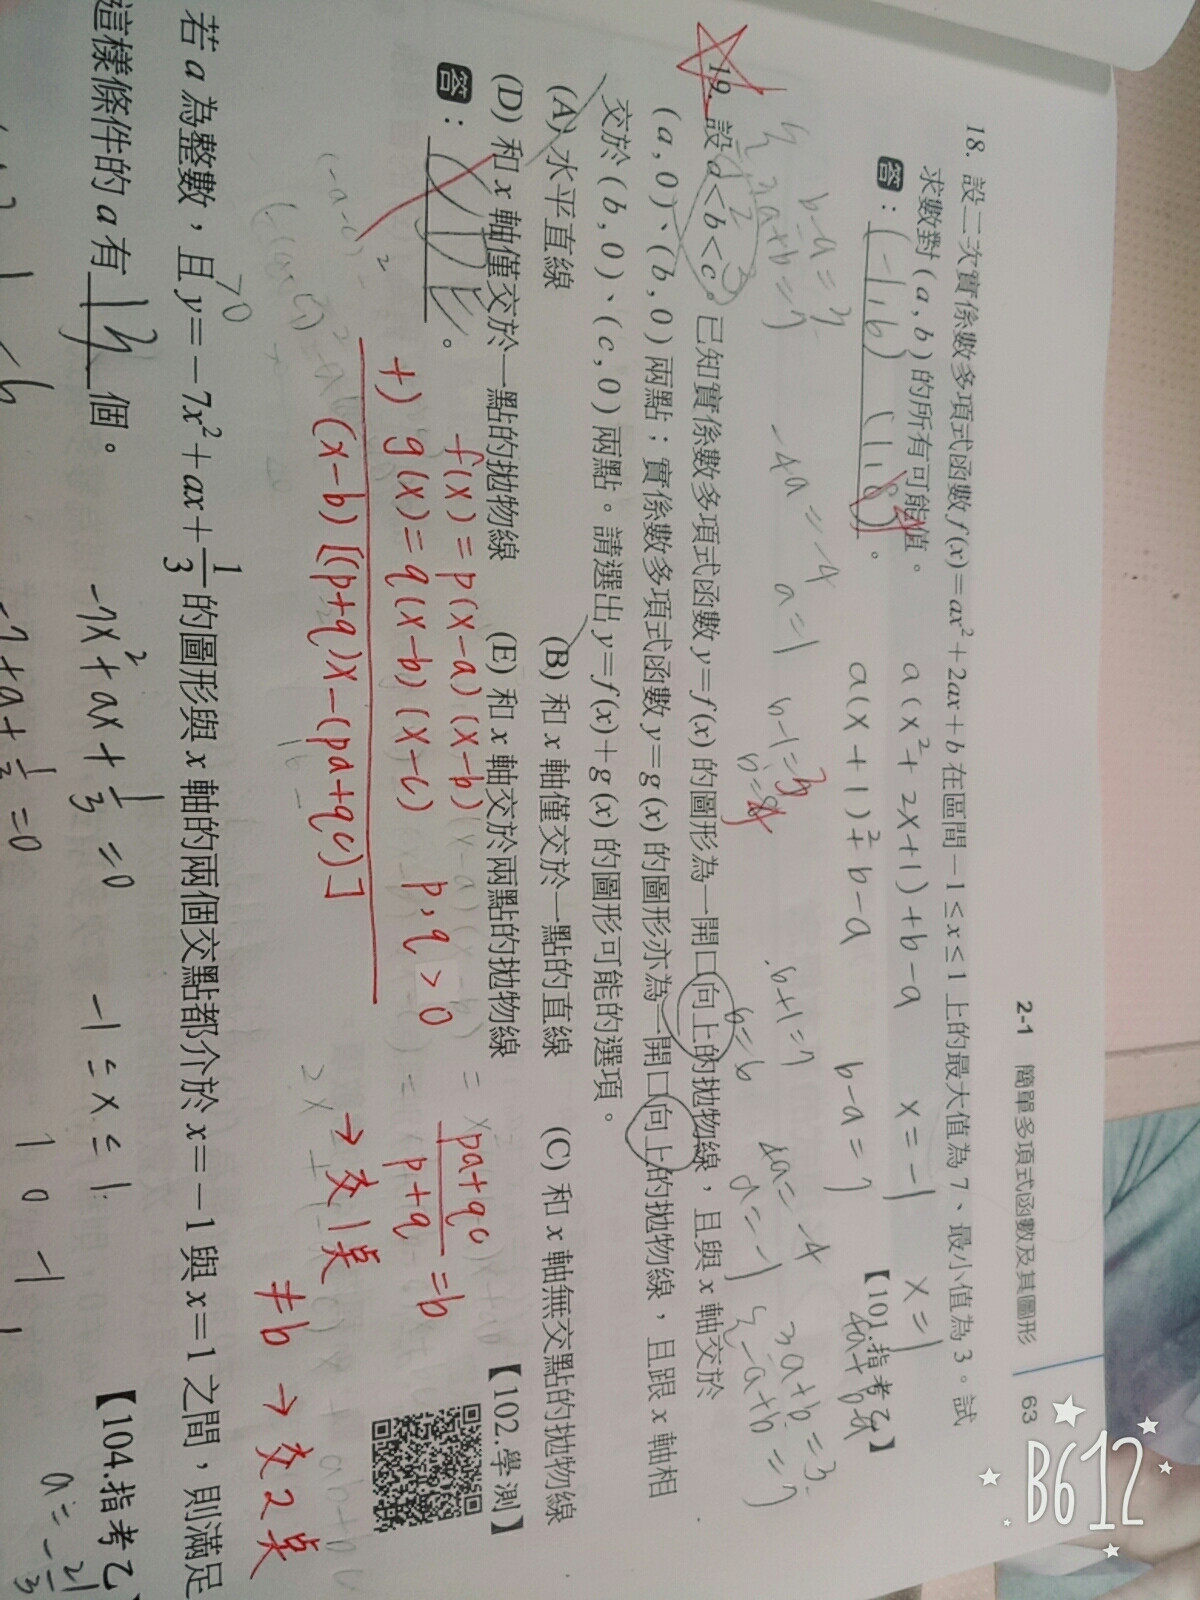 2-1 簡單多項式函數及其圖形 63
18. 設二次實係數多項式函數 f(x)=ax²+2ax+b 在區間 −1≤x≤1 上的最大值為 7、最小值為 3。試
求數對(a,b)的所有可能值。
【101.指考乙】
答:(-1,6) (1,8)。
a(x²+2x+1)+b-a
a(x+1)²+b-a
x=-1
x=1
b-a=7
b-a=3
3a+b=7
-4a=-4
a=1
b-1=3
b+1=7
b=6
4a=-4
a=-1
3a+b=3
-a+b=7
19. 設 a<b<c。已知實係數多項式函數 y=f(x)的圖形為一開口向上的拋物線,且與 x 軸交於
(a,0)、(b,0)兩點;實係數多項式函數 y=g(x)的圖形亦為一開口向上的拋物線,且跟 x 軸相
交於(b,0)、(c,0)兩點。請選出 y=f(x)+g(x)的圖形可能的選項。
(A) 水平直線 (B) 和 x 軸僅交於一點的直線 (C) 和 x 軸無交點的拋物線
(D) 和 x 軸僅交於一點的拋物線 (E) 和 x 軸交於兩點的拋物線
【102.學測】
答: 。
f(x)=p(x-a)(x-b)
+) g(x)=q(x-b)(x-c) p,q>0
(x-b)[(p+q)x-(pa+qc)]
pa+qc
p+q
=b
→交1點
≠b →交2點
若 a 為整數,且 y=−7x²+ax+1/3 的圖形與 x 軸的兩個交點都介於 x=−1 與 x=1 之間,則滿足
這樣條件的 a 有 13 個。
【104.指考乙】
>0
-7x²+ax+1/3=0
-1≤x≤1
-7+a+1/3=0
1 0 -1
B612